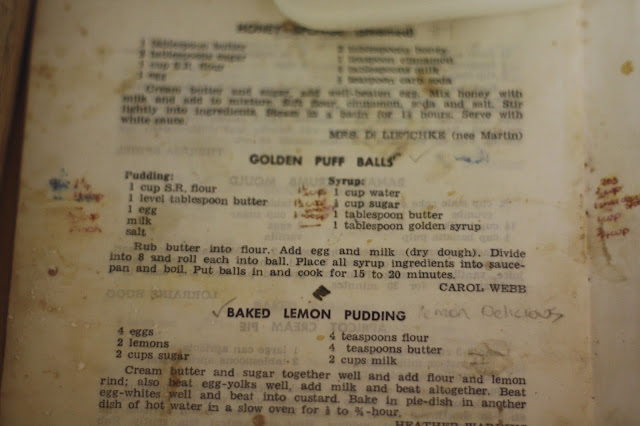 HONEY SPONGE (Steamed)
1 tablespoon butter 2 tablespoons honey
2 tablespoons sugar 1 teaspoon cinnamon
1 cup S.R. flour 2 tablespoons milk
1 egg 1 teaspoon carb soda
Cream butter and sugar, add well-beaten egg. Mix honey with
milk and add to mixture. Sift flour, cinnamon, soda and salt. Stir
lightly into ingredients. Steam in a basin for 1½ hours. Serve with
white sauce.
MRS. D. LIEPICHKE (nee Martin)
GOLDEN PUFF BALLS
Pudding: Syrup:
1 cup S.R. flour 1 cup water
1 level tablespoon butter 1 cup sugar
1 egg 1 tablespoon butter
milk 1 tablespoon golden syrup
salt
Rub butter into flour. Add egg and milk (dry dough). Divide
into 8 and roll each into ball. Place all syrup ingredients into sauce-
pan and boil. Put balls in and cook for 15 to 20 minutes.
CAROL WEBB
BAKED LEMON PUDDING Lemon Delicious
4 eggs 4 teaspoons flour
2 lemons 4 teaspoons butter
2 cups sugar 2 cups milk
Cream butter and sugar together well and add flour and lemon
rind; also beat egg-yolks well, add milk and beat altogether. Beat
egg-whites well and beat into custard. Bake in pie-dish in another
dish of hot water in a slow oven for ½ to ¾-hour.
HEATHER